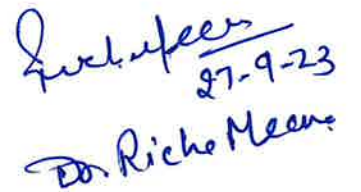 27-9-23
Dr. Richa Meena